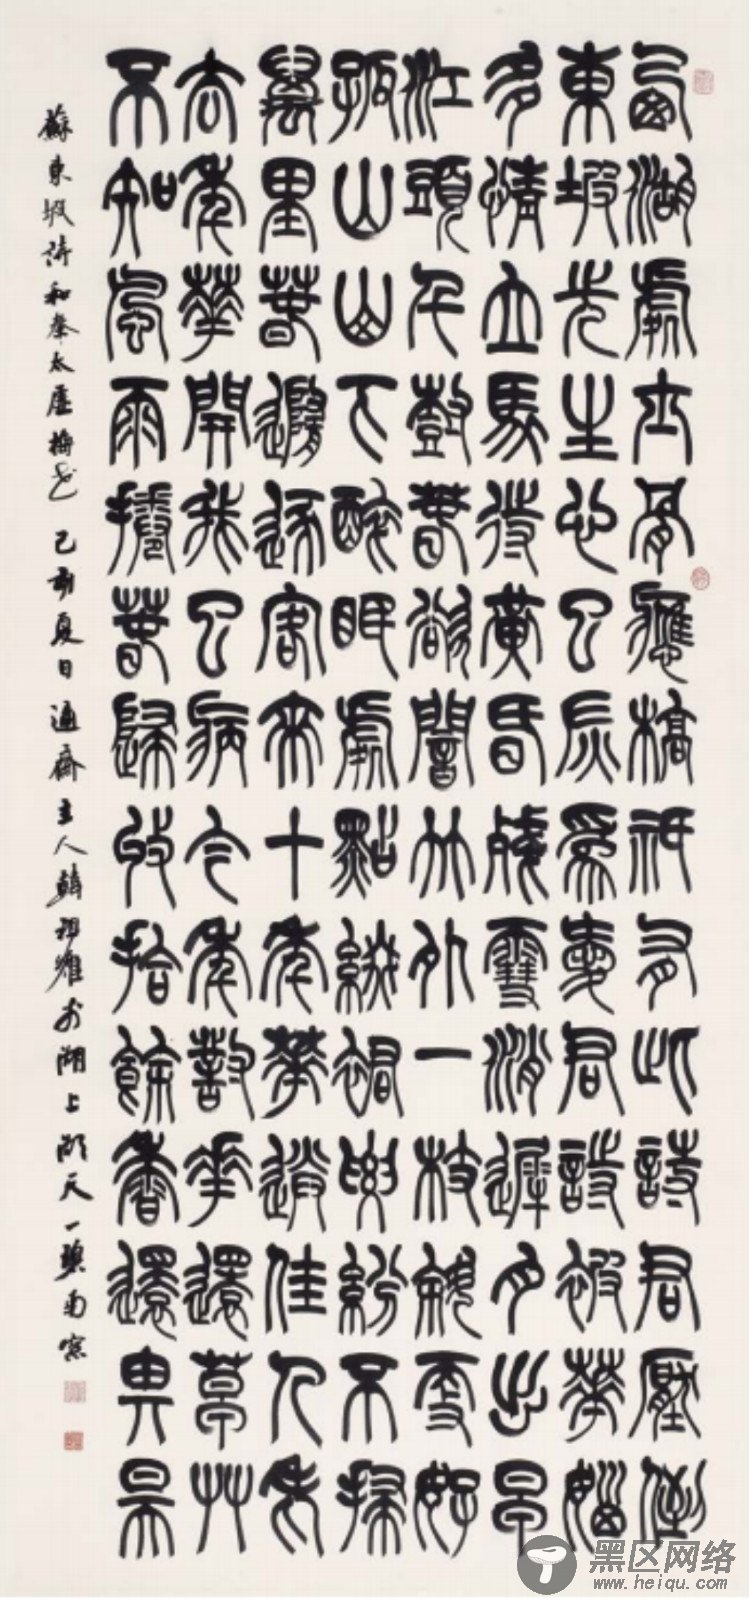 西湖處士骨應槁祇有此詩君壓倒
東坡先生心已灰為愛君詩被華惱
多情立馬待黃昏殘雪消遲月出早
江頭千樹春欲闇竹外一枝斜更好
孤山山下醉眠處點綴裙腰紛不掃
萬里春隨逐客來十年華送佳人老
去年華開我已病今年對華還草草
不知風雨捲春歸收拾餘香還畀昊
蘇東坡詩和秦太虛梅花 己亥夏日 通齋主人韓祖耀於湖上湖天一碧南窗
黑区网络
www.heiqu.com